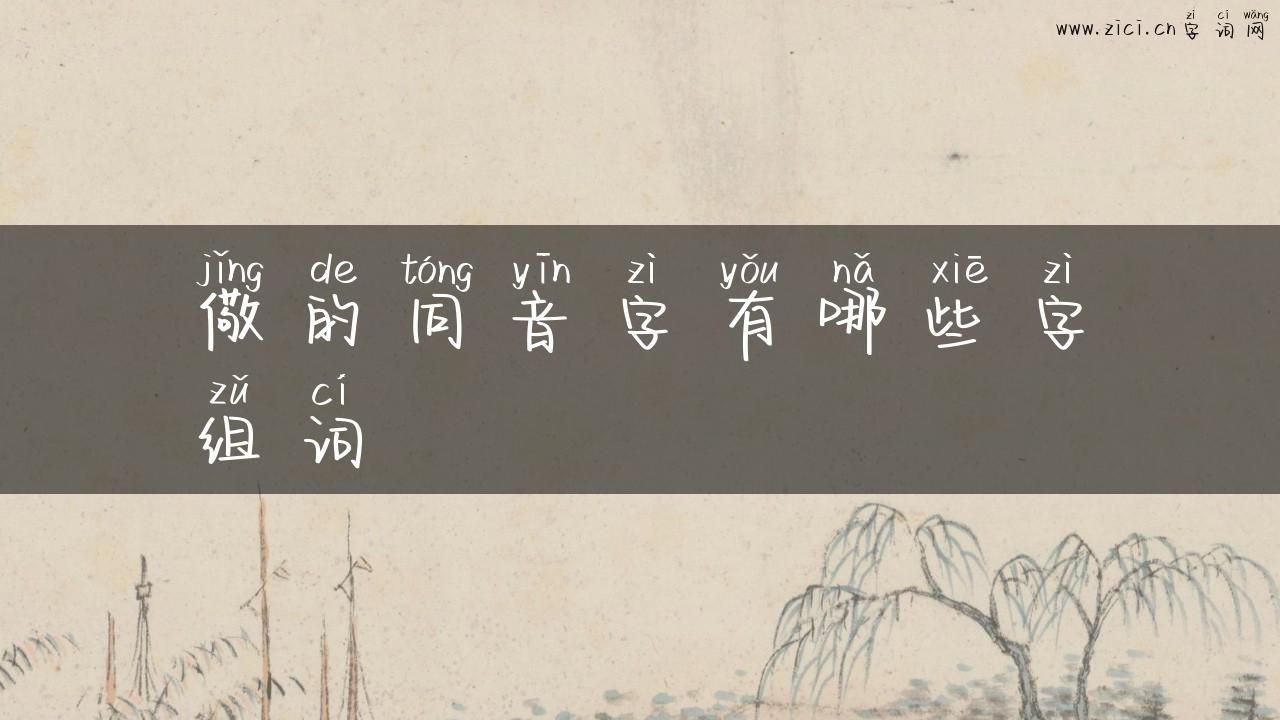 zì cí wǎng
www.zici.cn 字 词 网
jǐng de tóng yīn zì yǒu nǎ xiē zì
儆 的 同 音 字 有 哪 些 字
zǔ cí
组 词